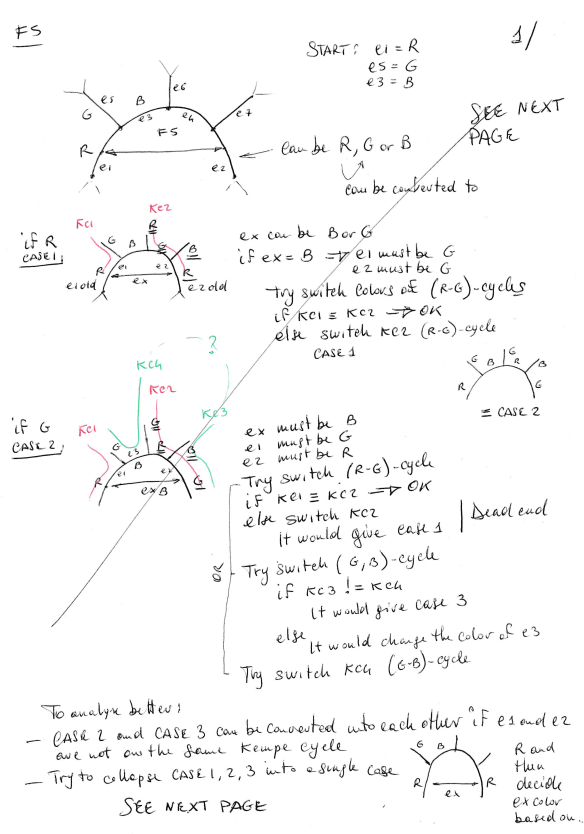 F5
1/
START: e1 = R
e5 = G
e3 = B
SEE NEXT
PAGE
e5 B e6
G e3 e4 e7
F5
R
e1 e2
can be R, G or B
can be converted to
if R
CASE 1:
KC1 KC2
R
G G B
R e1 e2 R
e1 old ex e2 old
ex can be B or G
if ex = B => e1 must be G
e2 must be G
Try switch colors of (R-G)-cycles
if KC1 ≡ KC2 => OK
else switch KC2 (R-G)-cycle
CASE 1
G
B R B
R G
≡ CASE 2
?
KC4
KC2
KC1 KC3
if G
CASE 2:
G
G e3 R B
e1 B ex
R ex B G
ex must be B
e1 must be G
e2 must be R
OR
Try switch (R-G)-cycle
if KC1 ≡ KC2 => OK
else switch KC2
It would give case 1 | Dead end
Try switch (G,B)-cycle
if KC3 != KC4
It would give case 3
else
It would change the color of e3
Try switch KC4 (G-B)-cycle
To analyze better:
— CASE 2 and CASE 3 can be converted into each other if e1 and e2
are not on the same Kempe cycle
— Try to collapse CASE 1, 2, 3 into a single case
SEE NEXT PAGE
G B
R R
ex
R and
then
decide
ex color
based on..